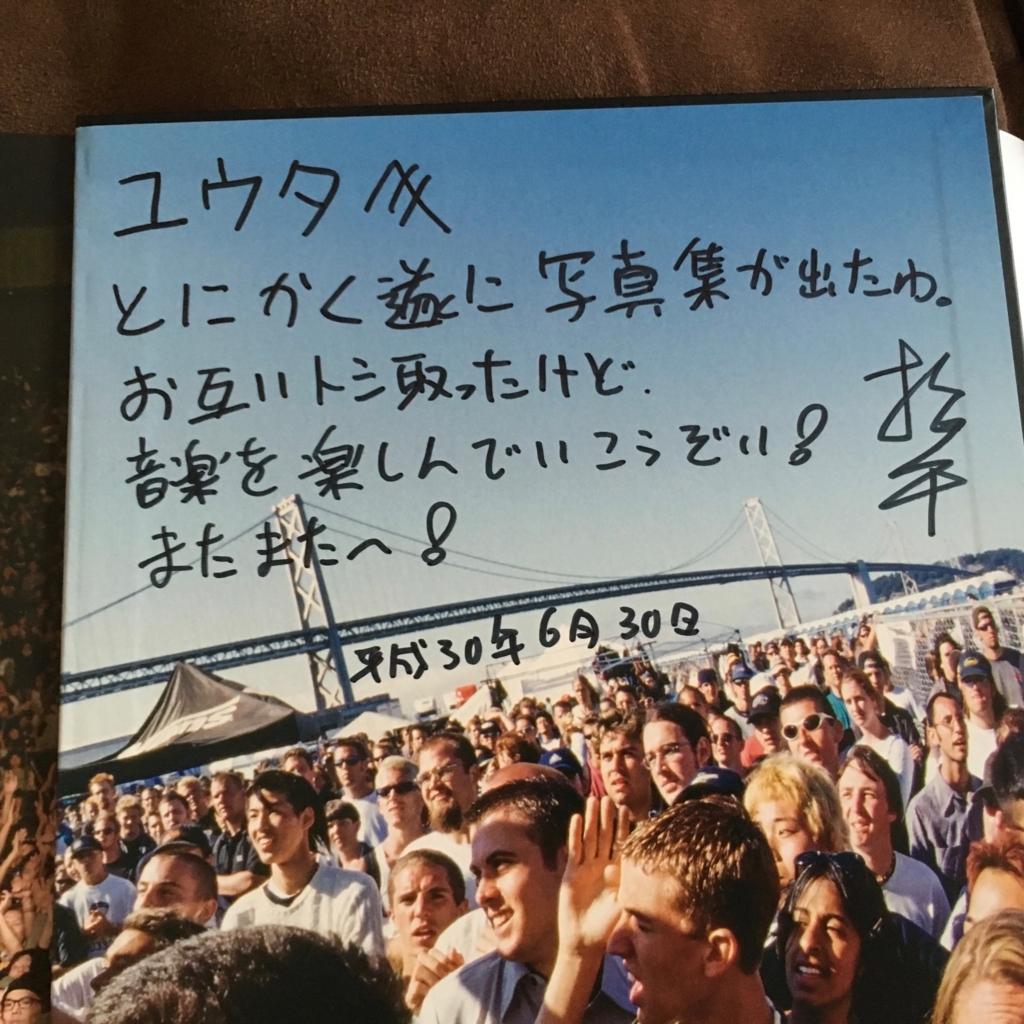 ユウタへ
とにかく遂に写真集が出たわ。
お互いトシ取ったけど.
音楽を楽しんでいこうぞい!
またまたへ!
哲平
平成30年6月30日